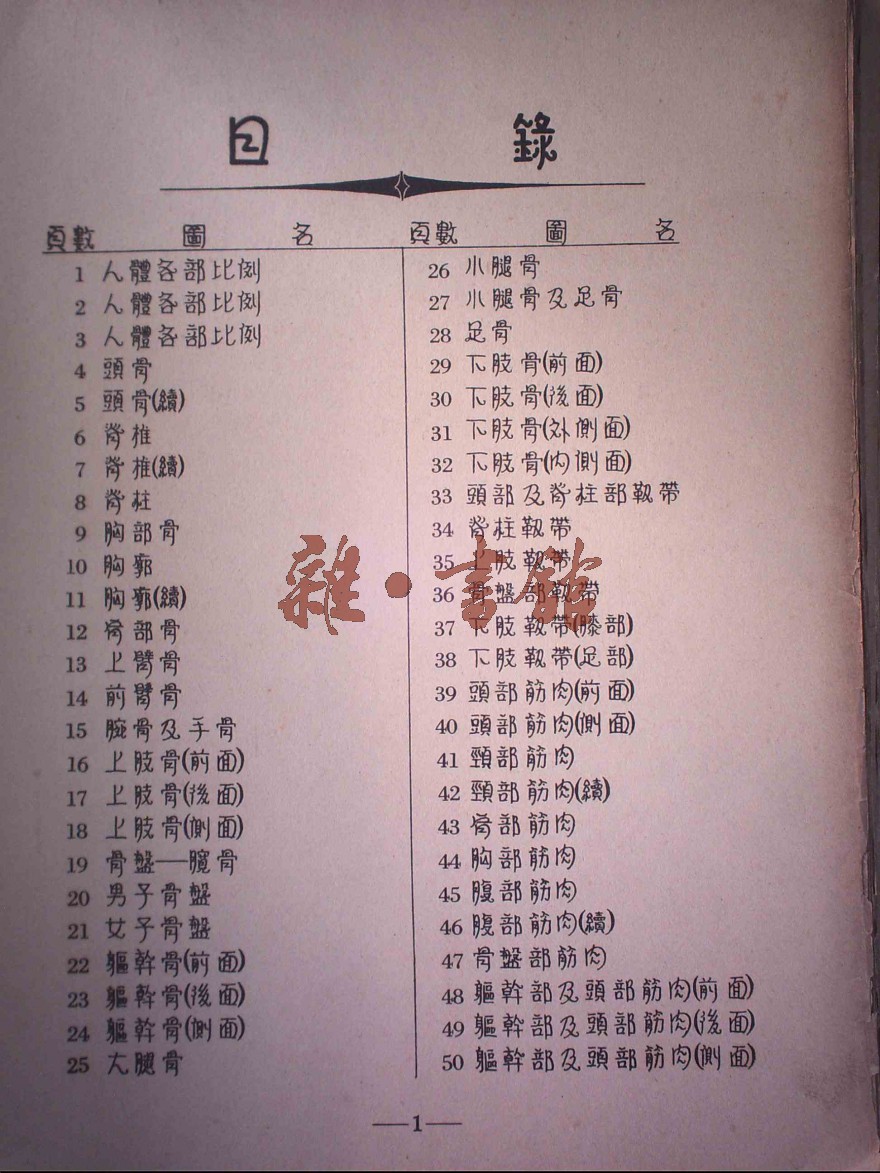 目 錄
頁數 圖 名
1 人體各部比例
2 人體各部比例
3 人體各部比例
4 頭骨
5 頭骨(續)
6 脊椎
7 脊椎(續)
8 脊柱
9 胸部骨
10 胸廓
11 胸廓(續)
12 肩部骨
13 上臂骨
14 前臂骨
15 腕骨及手骨
16 上肢骨(前面)
17 上肢骨(後面)
18 上肢骨(側面)
19 骨盤—臗骨
20 男子骨盤
21 女子骨盤
22 軀幹骨(前面)
23 軀幹骨(後面)
24 軀幹骨(側面)
25 大腿骨
頁數 圖 名
26 小腿骨
27 小腿骨及足骨
28 足骨
29 下肢骨(前面)
30 下肢骨(後面)
31 下肢骨(外側面)
32 下肢骨(內側面)
33 頭部及脊柱部靱帶
34 脊柱靱帶
35 上肢靱帶
36 骨盤部靱帶
37 下肢靱帶(膝部)
38 下肢靱帶(足部)
39 頭部筋肉(前面)
40 頭部筋肉(側面)
41 頸部筋肉
42 頸部筋肉(續)
43 肩部筋肉
44 胸部筋肉
45 腹部筋肉
46 腹部筋肉(續)
47 骨盤部筋肉
48 軀幹部及頭部筋肉(前面)
49 軀幹部及頭部筋肉(後面)
50 軀幹部及頭部筋肉(側面)
雜·書館
—1—